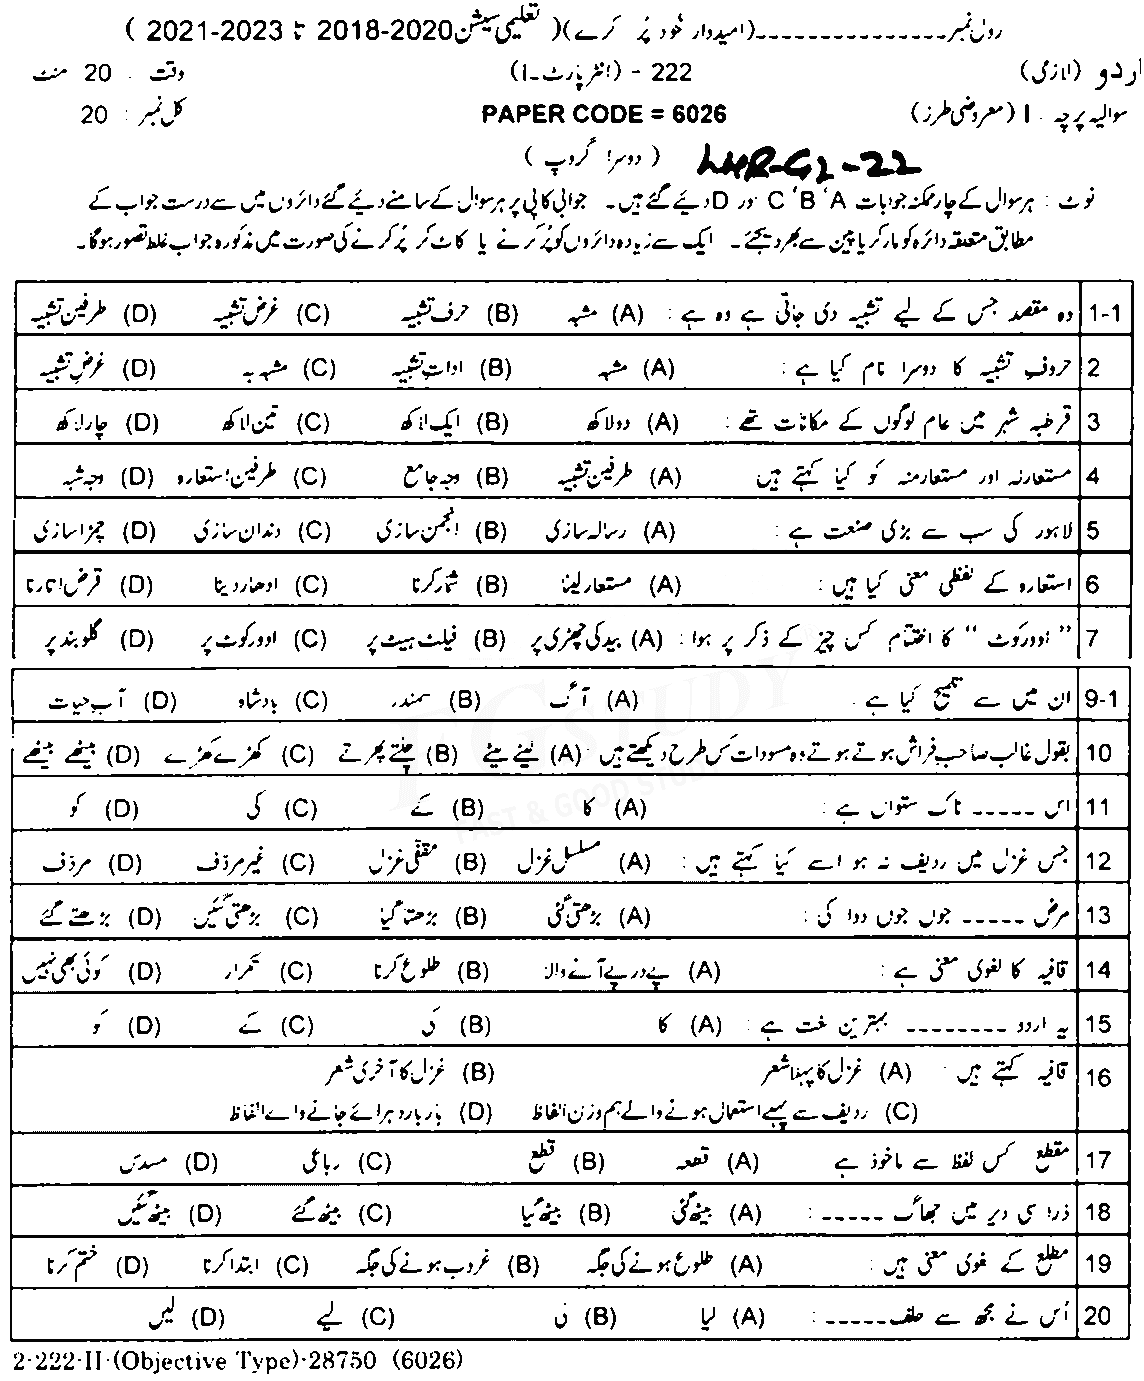 رول نمبر ـ ـ ـ ـ ـ ـ ـ ـ ـ ـ ـ ـ ـ ـ ـ (امیدوار خود پُر کرے) ( تعلیمی سیشن 2020-2018 تا 2023-2021 )
اردو (لازمی) 222 - (انٹر پارٹ-I) وقت : 20 منٹ
سوالیہ پرچہ : I (معروضی طرز) PAPER CODE = 6026 کل نمبر : 20
( دوسرا گروپ ) LHR-G2-22
نوٹ : ہر سوال کے چار ممکنہ جوابات A ' B ' C اور D دیئے گئے ہیں۔ جوابی کاپی پر ہر سوال کے سامنے دیئے گئے دائروں میں سے درست جواب کے
مطابق متعلقہ دائرہ کو مارکر یا پین سے بھر دیجئے۔ ایک سے زیادہ دائروں کو پُر کرنے یا کاٹ کر پُر کرنے کی صورت میں مذکورہ جواب غلط تصور ہوگا۔
1-1 وہ مقصد جس کے لیے تشبیہ دی جاتی ہے وہ ہے : (A) مشبہ (B) حرف تشبیہ (C) غرض تشبیہ (D) طرفین تشبیہ
2 حروفِ تشبیہ کا دوسرا نام کیا ہے : (A) مشبہ (B) اداتِ تشبیہ (C) مشبہ بہ (D) غرضِ تشبیہ
3 قرطبہ شہر میں عام لوگوں کے مکانات تھے : (A) دو لاکھ (B) ایک لاکھ (C) تین لاکھ (D) چار لاکھ
4 مستعارلہ اور مستعارمنہ کو کیا کہتے ہیں (A) طرفین تشبیہ (B) وجہ جامع (C) طرفین استعارہ (D) وجہ شبہ
5 لاہور کی سب سے بڑی صنعت ہے : (A) رسالہ سازی (B) انجمن سازی (C) دندان سازی (D) چمڑا سازی
6 استعارہ کے لفظی معنی کیا ہیں : (A) مستعار لینا (B) شمار کرنا (C) ادھار دینا (D) قرض اتارنا
7 " اوورکوٹ " کا اختتام کس چیز کے ذکر پر ہوا : (A) بید کی چھڑی پر (B) فیلٹ ہیٹ پر (C) اوورکوٹ پر (D) گلوبند پر
9-1 ان میں سے تلمیح کیا ہے : (A) آگ (B) سمندر (C) بادشاہ (D) آب حیات
10 بقول غالب صاحب فراش ہوتے ہوتے وہ مسودات کس طرح دیکھتے ہیں : (A) لیٹے لیٹے (B) چلتے پھرتے (C) کھڑے کھڑے (D) بیٹھے بیٹھے
11 اس ـ ـ ـ ـ ـ ناک ستواں ہے : (A) کا (B) کے (C) کی (D) کو
12 جس غزل میں ردیف نہ ہو اسے کیا کہتے ہیں : (A) مسلسل غزل (B) مقفّی غزل (C) غیر مردّف (D) مردّف
13 مرض ـ ـ ـ ـ ـ جوں جوں دوا کی : (A) بڑھتی گئی (B) بڑھتا گیا (C) بڑھتی گئیں (D) بڑھتے گئے
14 قافیہ کا لغوی معنی ہے : (A) پے در پے آنے والا (B) طلوع کرنا (C) تکرار (D) کوئی بھی نہیں
15 یہ اردو ـ ـ ـ ـ ـ ـ ـ ـ بہترین لغت ہے : (A) کا (B) کی (C) کے (D) کو
16 قافیہ کہتے ہیں : (A) غزل کا پہلا شعر (B) غزل کا آخری شعر
(C) ردیف سے پہلے استعمال ہونے والے ہم وزن الفاظ (D) بار بار دہرائے جانے والے الفاظ
17 مقطع کس لفظ سے ماخوذ ہے (A) قطعہ (B) قطع (C) رباعی (D) مسدس
18 ذرا سی دیر میں جھاگ ـ ـ ـ ـ ـ : (A) بیٹھ گئی (B) بیٹھ گیا (C) بیٹھ گئے (D) بیٹھ گئیں
19 مطلع کے لغوی معنی ہیں : (A) طلوع ہونے کی جگہ (B) غروب ہونے کی جگہ (C) ابتدا کرنا (D) ختم کرنا
20 اُس نے مجھ سے حلف ـ ـ ـ ـ ـ : (A) لیا (B) لی (C) لیے (D) لیں
2-222-II-(Objective Type)-28750 (6026)